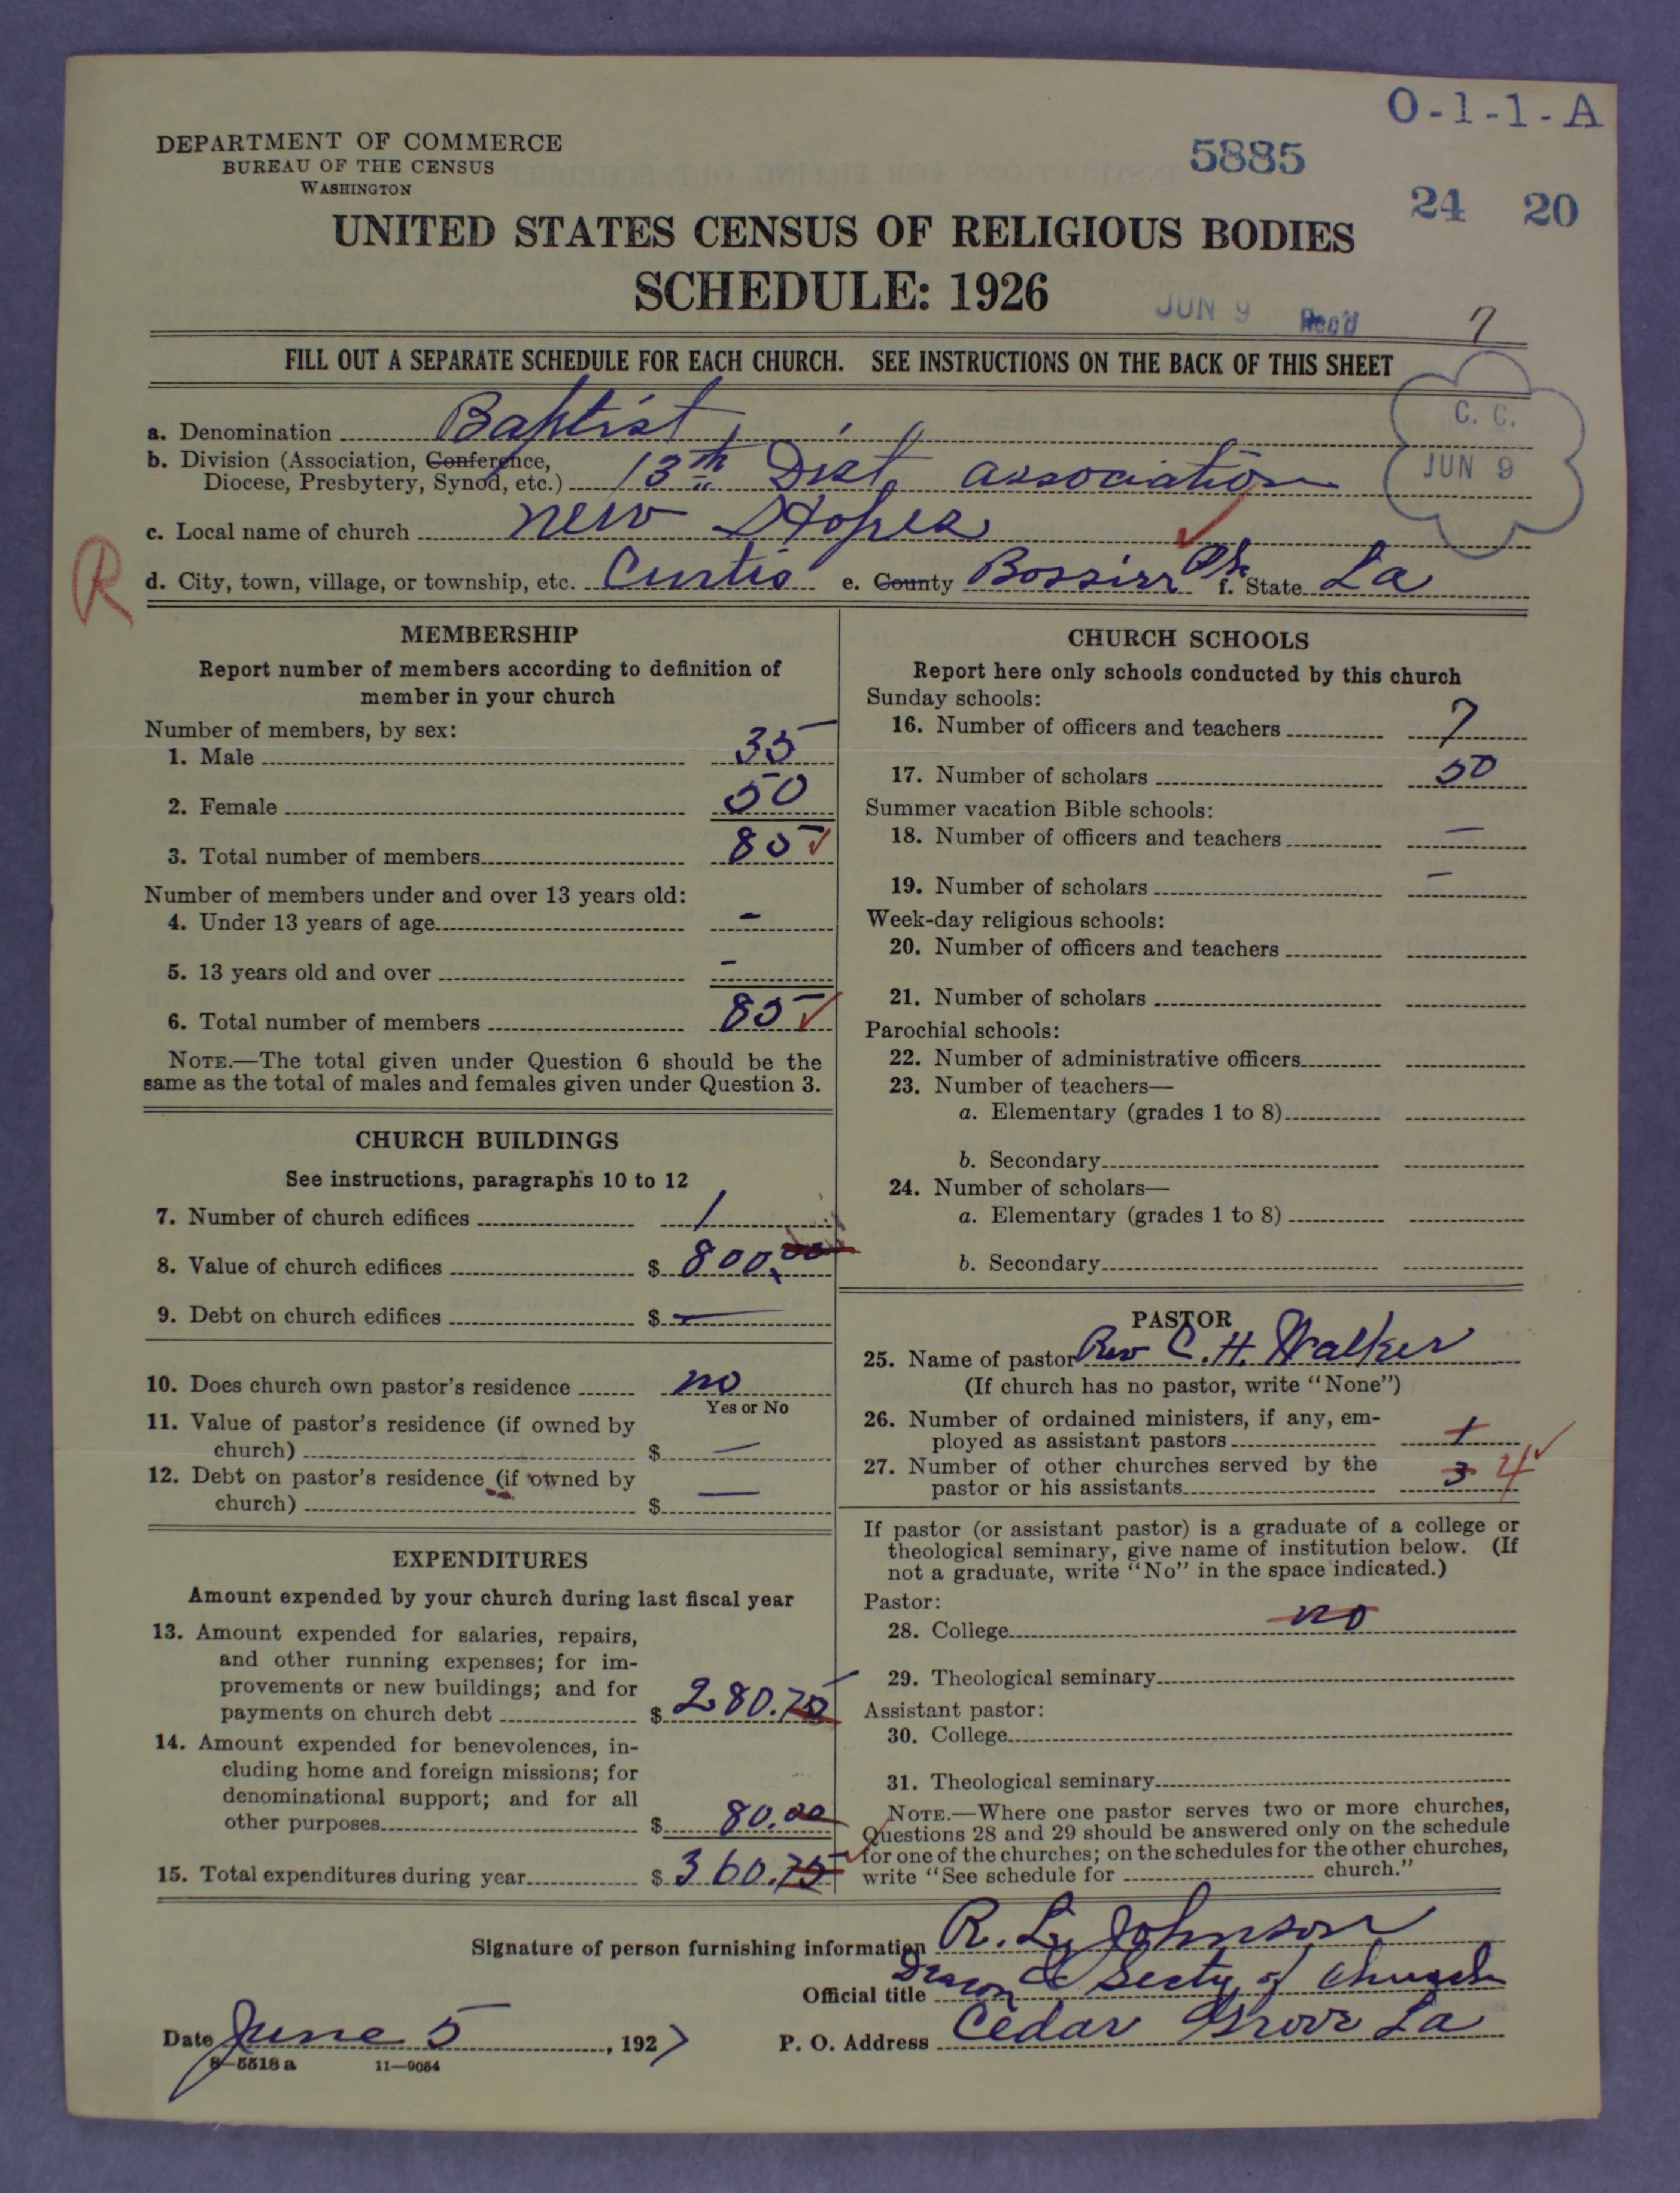 O-1-1-A
DEPARTMENT OF COMMERCE
BUREAU OF THE CENSUS
WASHINGTON
5885
24 20
UNITED STATES CENSUS OF RELIGIOUS BODIES
SCHEDULE: 1926
JUN 9 Rec'd 7
FILL OUT A SEPARATE SCHEDULE FOR EACH CHURCH. SEE INSTRUCTIONS ON THE BACK OF THIS SHEET
C. C.
JUN 9
a. Denomination Baptist
b. Division (Association, Conference,
Diocese, Presbytery, Synod, etc.) 13th Dist. association
c. Local name of church new Hopes
R
d. City, town, village, or township, etc. Curtis e. County Bossier f. State La
MEMBERSHIP
Report number of members according to definition of
member in your church
Number of members, by sex:
1. Male 35
2. Female 50
3. Total number of members 85
Number of members under and over 13 years old:
4. Under 13 years of age -
5. 13 years old and over -
6. Total number of members 85
NOTE.—The total given under Question 6 should be the
same as the total of males and females given under Question 3.
CHURCH BUILDINGS
See instructions, paragraphs 10 to 12
7. Number of church edifices 1
8. Value of church edifices $ 800.00
9. Debt on church edifices $ —
10. Does church own pastor's residence no
Yes or No
11. Value of pastor's residence (if owned by
church) $ —
12. Debt on pastor's residence (if owned by
church) $ —
EXPENDITURES
Amount expended by your church during last fiscal year
13. Amount expended for salaries, repairs,
and other running expenses; for im-
provements or new buildings; and for
payments on church debt $ 280.75
14. Amount expended for benevolences, in-
cluding home and foreign missions; for
denominational support; and for all
other purposes $ 80.00
15. Total expenditures during year $ 360.75
CHURCH SCHOOLS
Report here only schools conducted by this church
Sunday schools:
16. Number of officers and teachers 7
17. Number of scholars 50
Summer vacation Bible schools:
18. Number of officers and teachers —
19. Number of scholars —
Week-day religious schools:
20. Number of officers and teachers
21. Number of scholars
Parochial schools:
22. Number of administrative officers
23. Number of teachers—
a. Elementary (grades 1 to 8)
b. Secondary
24. Number of scholars—
a. Elementary (grades 1 to 8)
b. Secondary
PASTOR
25. Name of pastor Rev C. H. Walker
(If church has no pastor, write "None")
26. Number of ordained ministers, if any, em-
ployed as assistant pastors 1
27. Number of other churches served by the
pastor or his assistants 3 4
If pastor (or assistant pastor) is a graduate of a college or
theological seminary, give name of institution below. (If
not a graduate, write "No" in the space indicated.)
Pastor:
28. College no
29. Theological seminary
Assistant pastor:
30. College
31. Theological seminary
NOTE.—Where one pastor serves two or more churches,
Questions 28 and 29 should be answered only on the schedule
for one of the churches; on the schedules for the other churches,
write "See schedule for church."
Signature of person furnishing information R. L. Johnson
Official title Deacon & Secty of Church
Date June 5, 1927 P. O. Address Cedar Grove La
8-5518 a 11-9054